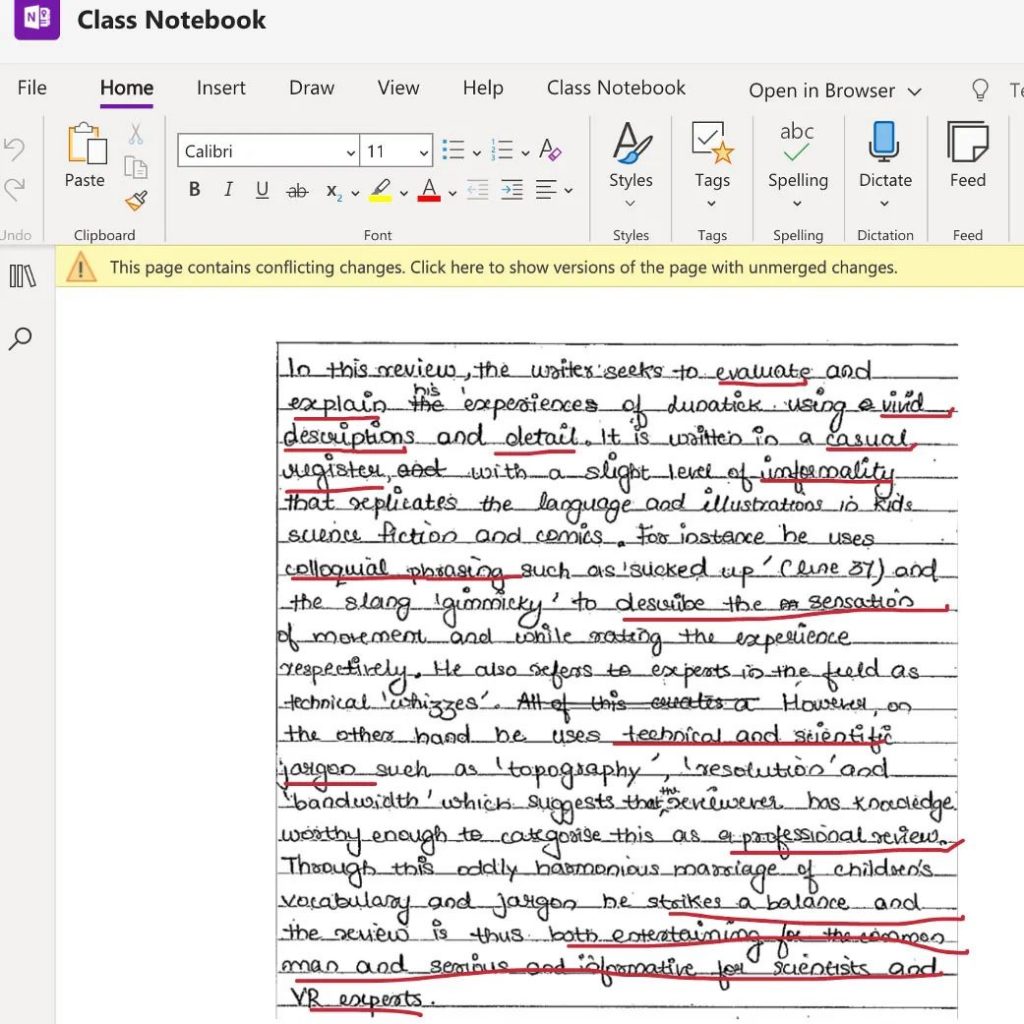 Class Notebook
File Home Insert Draw View Help Class Notebook Open in Browser Te
Calibri 11
abc
Paste Styles Tags Spelling Dictate Feed
B I U ab x2 A
Undo Clipboard Font Styles Tags Spelling Dictation Feed
This page contains conflicting changes. Click here to show versions of the page with unmerged changes.
In this review, the writer seeks to evaluate and
explain the his experiences of using a vivid
descriptions and detail. It is written in a casual
register, and with a slight level of informality
that replicates the language and illustrations in kids
science fiction and comics. For instance he uses
colloquial phrasing such as 'sucked up' (line 37) and
the slang 'gimmicky' to describe the sensation
of movement and while rating the experience
respectively. He also refers to experts in the field as
technical 'whizzes'. All of this creates a However, on
the other hand he uses technical and scientific
jargon such as 'topography', 'resolution' and
'bandwidth' which suggests that the reviewer has knowledge
worthy enough to categorise this as a professional review.
Through this oddly harmonious marriage of children's
vocabulary and jargon he strikes a balance and
the review is thus both entertaining for the common
man and serious and informative for scientists and
VR experts.